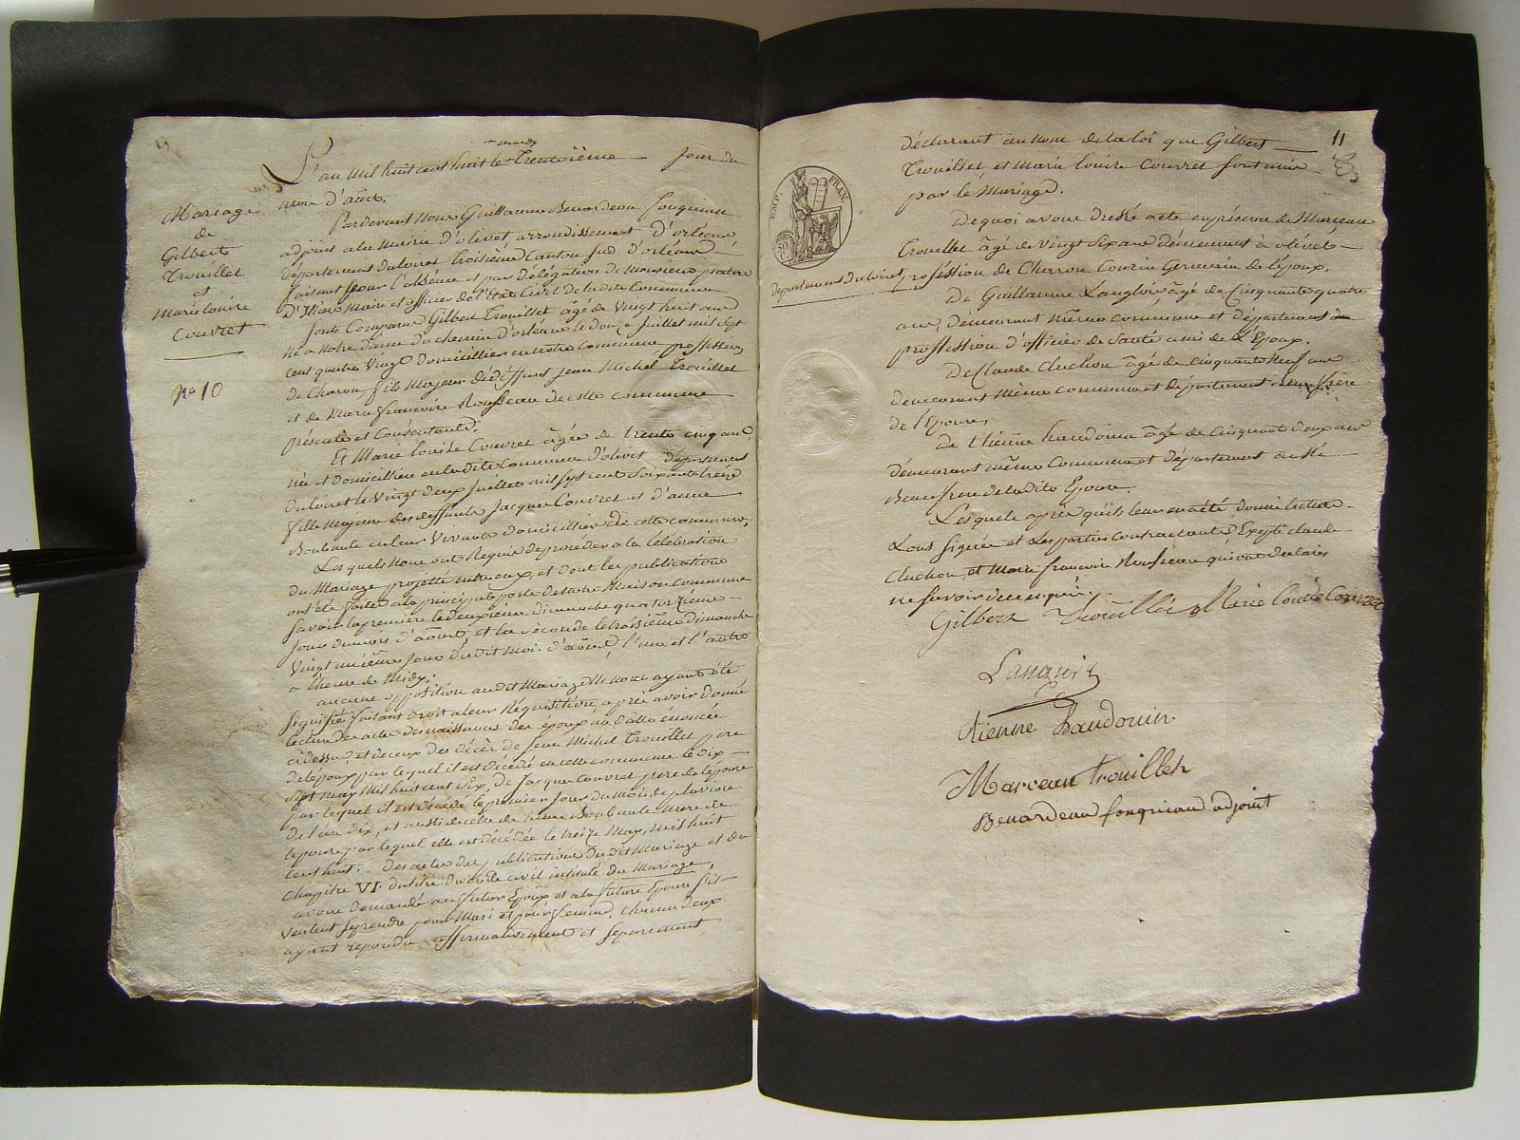 Mariage
de
Gilbert
Trouillet
et
Marie Louise
Couvret
No 10
mardy
L'an mil huit cent huit le Trentoième jour du
mois d'aout.
Pardevant nous Guillaume Benardeau fouqueau
adjoint a la Mairie d'olivet arrondissement d'orléans
département du loiret troisième Canton sud d'orléans
faisant pour l'absence et par Délégation de Monsieur
Maire et officier de l'état Civil de la ditte Commune
sont Comparus Gilbert Trouillet âgé de Vingt huit ans
né a notre dame du chemin d'orléans le douze Juillet mil sept
cent quatre Vingt Domicillier en notre Commune proffession
de Charon, fils Majeur de deffunt Jean Michel Trouillet
et de Marie francoise Rousseau de ditte commune
présente et Consentante.
Et Marie louise Couvret âgée de trente cinq ans
née et domicilliée en la ditte Commune d'olivet département
du loiret le Vingt deux Juillet mil sept cent Soixante treize
fille Majeure des deffunts Jacques Couvret et d'anne
Boubaule en leur Vivants domicillier de cette commune,
Lesquels nous ont Requis de proceder a la Célébration
du Mariage projetté entre eux, et dont les publications
ont été faites a la principale porte de notre Maison Commune
Savoir la première le deuxième dimanche quatorzième
Jour du mois d'aoust, et la seconde le troisième dimanche
Vingt unième Jour du dit moi d'aoust, l'une et l'autre
a l'heure de Midy;
aucune opposition audit Mariage Ne nous ayant été
signifiée faisant droit a leur Réquisition, après avoir donné
lecture des actes de naissances des époux
cidessus, et de ceux des décès de Jean Michel Trouillet père
de l'époux par lequel il est Décédé en cette commune le dix
sept may Mil huit cent Six, de Jacque Couvret pere de l'épouse
par lequel il est décédé le premier Jour du Mois de pluviose
de l'an dix, et aussi de celle de anne Boubaule Mere de
l'epouse par lequel elle est décédée le treize May, mil huit
cent huit; Des actes des publications du dit Mariage et du
Chapitre VI. du titre du code civil intitulé du Mariage,
avons demandé au futur Epoux et a la future Epouse s'il
veulent se prendre pour Mari et pour femme, chacun d'eux
ayant repondu affirmativement et séparément
11
EMP. FRAN.
département du Loiret,
déclarant au nom de la loi que Gilbert
Trouillet et Marie Louise Couvret sont unis
par le Mariage.
De quoi avons dressé acte en présence de Marceau
Trouillet âgé de vingt Six ans demeurant à olivet
profession de Cherron Cousin Germain de l'époux.
De Guillaume Langlois âgé de Cinquante quatre
ans, démeurant même commune et département
proffession d'officier de Santé ami de l'Epoux.
De Claude Cluchon âgé de cinquante Neuf ans
demeurant même commune et département
de l'Epouse;
de Etienne baudouin âgé de Cinquante deux ans
démeurant même Commune et département
Beaufrere de la dite Epouse.
Lesquels après qu'ils leur en a été donné lecture
L'ons Signée et Les parties contractantes Excepté claude
Cluchon, et Marie francoise Rousseau qui ont declarés
ne Savoir
Gilbert Trouillet Marie Louise Couvret
Langlois
Etienne Baudouin
Marceau trouillet
Benardeau fouqueau adjoint